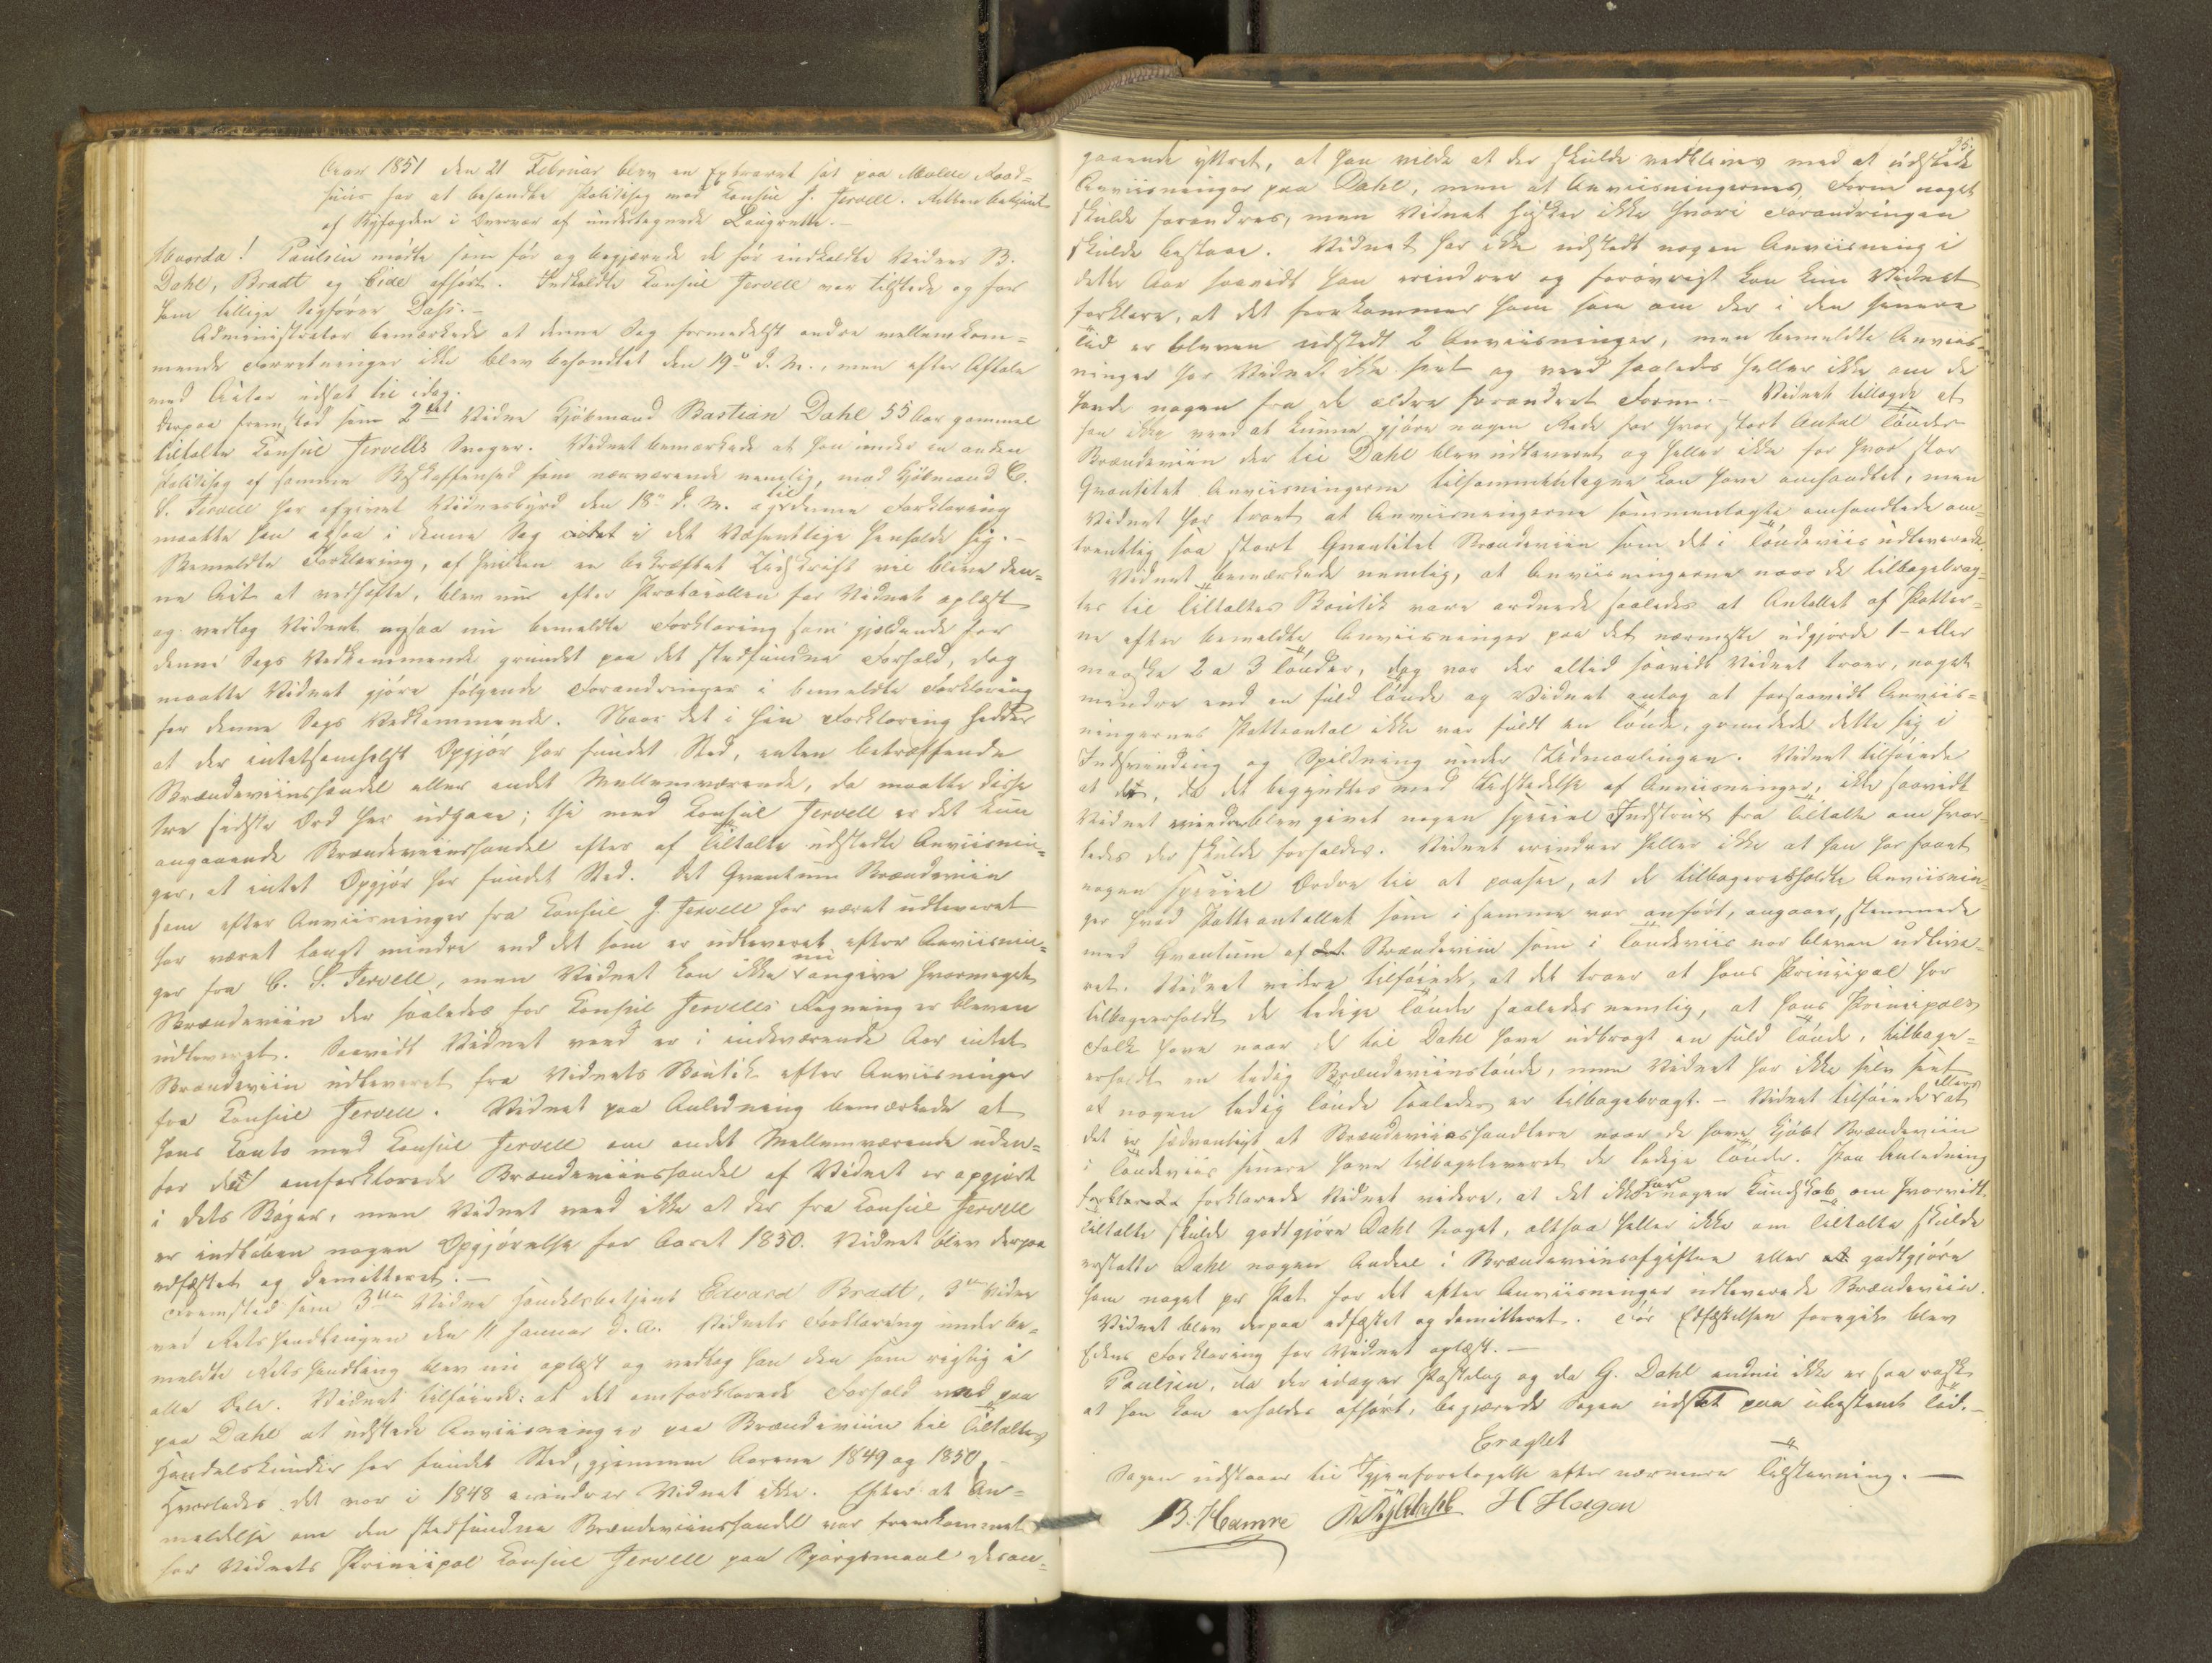 Aar 1851 den 21 Februar blev en Extraret sat paa Molde Raad-
huus for at behandle Politisag mod Consul J. Jervell. Retten betjent
af Byfogden i Overvær af undertegnede Laugrette.-
Hvorda! Paulsen mødte som før og begjærede de før indkaldte Vidner B.
Dahl, Bradt og Eide afhørt. Indkaldte Consul Jervell var tilstede og for
ham tillige Sagfører Dass.-
Administrator bemærkede at denne Sag formedelst andre mellemkom-
mende Forretninger ikke blev behandlet den 19de d. M., men efter Aftale
med Actor udsat til idag.
Derpaa fremstod som 2det Vidne Kjøbmand Bastian Dahl 55 Aar gammel
tiltalte Consul Jervells Svoger. Vidnet bemærkede at han under en anden
Politisag af samme Beskaffenhed som nærværende nemlig, mod Kjøbmand C.
S. Jervell har afgivet Vidnesbyrd den 18de d. M. og til denne Forklaring
maatte han ogsaa i denne Sag i det Væsentlige henholde sig.-
Bemeldte Forklaring, af hvilken en bekræftet Udskrift vil blive den-
ne Act at vedhefte, blev nu efter Protocollen for Vidnet oplæst
og vedtog Vidnet ogsaa nu bemeldte Forklaring som gjældende for
denne Sags Vedkommende grundet paa det stedfundne Forhold, dog
maatte Vidnet gjøre følgende Forandringer i bemeldte Forklaring
for denne Sags Vedkommende. Naar det i hiin Forklaring hedder
at der intetsomhelst Opgjør har fundet Sted, enten betræffende
Brændeviinshandel eller andet Mellemværende, da maatte disse
tre sidste Ord her udgaae; thi med Consul Jervell er det kun
angaaende Brændeviinshandel efter af Tiltalte udstedte Anviisnin-
ger, at intet Opgjør har fundet Sted. Det Qvantum Brændeviin
som efter Anviisninger fra Consul J. Jervell har været udleveret
har været langt mindre end det som er udleveret efter Anviisnin-
ger fra C. S. Jervell, men Vidnet kan ikke nu angive hvormeget
Brændeviin der saaledes for Consul Jervells Regning er bleven
udleveret. Saavidt Vidnet veed er i indeværende Aar intet
Brændeviin udleveret fra Vidnets Boutik efter Anviisninger
fra Consul Jervell. Vidnet paa Anledning bemærkede at
hans Conto med Consul Jervell om andet Mellemværende uden-
for det omforklarede Brændeviinshandel af Vidnet er opgjort
i dets Bøger, men Vidnet veed ikke at der fra Consul Jervell
er indløben nogen Opgjørelse for Aaret 1850. Vidnet blev derpaa
edfæstet og demitteret.-
Fremstod som 3die Vidne Handelsbetjent Edvard Bradt, 3die Vidne
ved Retshandlingen den 11 Januar d. A. Vidnets Forklaring under be-
meldte Retshandling blev nu oplæst og vedtog han den som rigtig i
alle Dele. Vidnet tilføiede: at det omforklarede Forhold med
paa Dahl at udstede Anviisninger paa Brændeviin til Tiltaltes
Handelskunder har fundet Sted, gjennem Aarene 1849 og 1850,
Hvorledes det var i 1848 erindrer Vidnet ikke. Efter at An-
meldelse om den stedfundne Brændeviinshandel var fremkommet
har Vidnets Principal Consul Jervell paa Spørgsmaal desan-
35.
gaaende yttret, at han vilde at der skulde vedblives med at udstede
Anviisninger paa Dahl, men at Anviisningernes Form noget
skulde forandres, men Vidnet husker ikke hvori Forandringen
skulde bestaae. Vidnet har ikke udstedt nogen Anviisning i
dette Aar saavidt han erindrer og forøvrigt kan kun Vidnet
forklare, at det forekommer ham som om der i den senere
Tid er bleven udstedt 2 Anviisninger, men bemeldte Anviis-
ninger har Vidnet ikke seet og veed saaledes heller ikke om de
havde nogen fra de ældre forandret Form.- Vidnet tillagde at
han ikke veed at kunne gjøre nogen Rede for hvor stort Antal Tønder
Brændeviin der til Dahl blev udleveret og heller ikke for hvor stor
Qvantitet Anviisningerne tilsammentagne kan have omhandlet, men
Vidnet har troet at Anviisningerne sammenlagte omhandlede om-
trentlig saa stort Qvantitet Brændeviin som det i Tøndeviis udleverede.
Vidnet bemærkede nemlig, at Anviisningerne naar de tilbagebrag-
tes til Tiltaltes Boutik vare ordnede saaledes at Antallet af Potter-
ne efter bemeldte Anviisninger paa det nærmeste udgjorde 1- eller
maaske 2 a 3 Tønder, dog var der altid saavidt Vidnet troer, noget
mindre end en fuld Tønde og Vidnet antog at forsaavidt Anviis-
ningernes Potteantal ikke var fuldt en Tønde, grundede dette sig i
Indsvinding og Spildning under Udmaalingen. Vidnet tilføiede
at der, da det begyndtes med Udstedelse af Anviisninger, ikke saavidt
Vidnet erindrer blev givet nogen speciel Indstrux fra Tiltalte om hvor-
ledes der skulde forholdes. Vidnet erindrer heller ikke at han har faaet
nogen speciel Ordre til at paasee, at de tilbageerholdte Anviisnin-
ger hvad Potteantallet som i samme var anført, angaaer, stemmede
med Qvantum af det Brændeviin som i Tøndeviis var bleven udleve-
ret. Vidnet videre tilføiede, at det troer at hans Principal har
tilbageerholdt de ledige Tønder saaledes nemlig, at hans Principals
Folk have naar de til Dahl have udbragt en fuld Tønde, tilbage-
erholdt en ledig Brændeviinstønde, men Vidnet har ikke selv seet
at nogen ledig Tønde saaledes er tilbagebragt.- Vidnet tilføiede ellers at
det er sædvanligt at Brændeviinshandlere naar de have kjøbt Brændeviin
i Tøndeviis senere have tilbageleveret de ledige Tønder. Paa Anledning
forklarede Vidnet videre, at det ikke har nogen Kundskab om hvorvidt
Tiltalte skulde godtgjøre Dahl Noget, altsaa heller ikke om Tiltalte skulde
erstatte Dahl nogen Andeel i Brændeviinsafgiften eller at godtgjøre
ham noget pr Pot for det efter Anviisninger udleverede Brændeviin.
Vidnet blev derpaa edfæstet og demitteret. Før Edfæstelsen foregik blev
Edens Forklaring for Vidnet oplæst.-
Paulsen, da der idag er Postdag og da G. Dahl endnu ikke er saa rask
at han kan erholdes afhørt, begjærede Sagen udsat paa ubestemt Tid.-
Eragtet
Sagen udstaaer til Igjenforetagelse efter nærmere Tilstævning.-
B. Hamre H Hagen